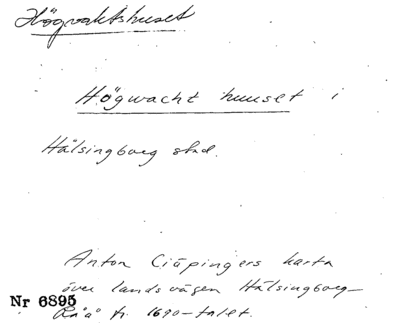 Högvaktshuset
Högwacht huuset i
Hälsingborg stad.
Anton Ciäpingers karta
över landsvägen Hälsingborg–
Råå fr. 1690-talet.
Nr 6895